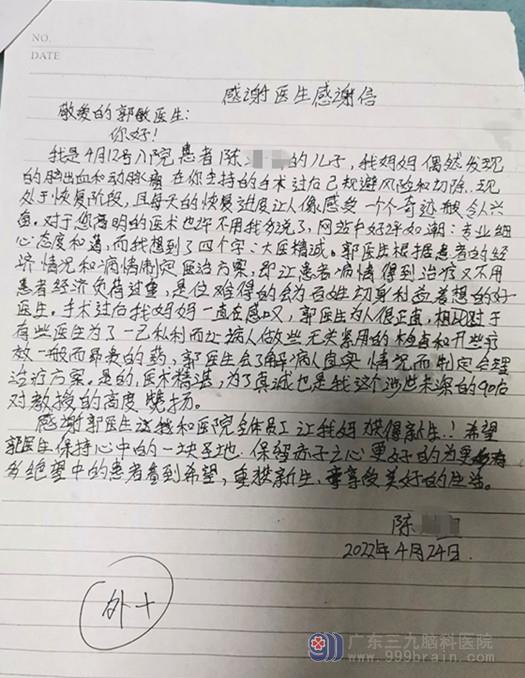 NO.
DATE
感谢医生感谢信
敬爱的郭敏医生:
你好!
我是4月12号入院患者陈 的儿子,我妈妈偶然发现
的脑出血和动脉瘤在你主持的手术过后已规避风险和切除.现
处于恢复阶段,且每天的恢复进度让人像感受一个个奇迹般令人兴
奋。对于您高明的医术也许不用我多说了,网站中好评如潮:专业细
心态度和蔼,而我想到了四个字:大医精诚。郭医生根据患者的经
济情况和病情制定医治方案,即让患者病情得到治疗又不用
患者经济负荷过重,是位难得的会为百姓切身利益着想的好
医生。手术过后我妈妈一直在感叹,郭医生为人很正直,相比对于
有些医生为了一己私利而让病人做些无关紧用的检查和开些疗
效一般而昂贵的药,郭医生会了解病人真实情况而制定合理
治疗方案。是的,医术精湛,为了真诚也是我这个涉世未深的90后
对教授的高度赞扬。
感谢郭医生这我和医院全体员工让我妈获得新生!希望
郭医生保持心中的一块圣地.保留赤子之心更好的为更多
绝望中的患者看到希望,重获新生,享受美好的生活。
陈
2022年4月24日.
外十
广东三九脑科医院
www.999brain.com